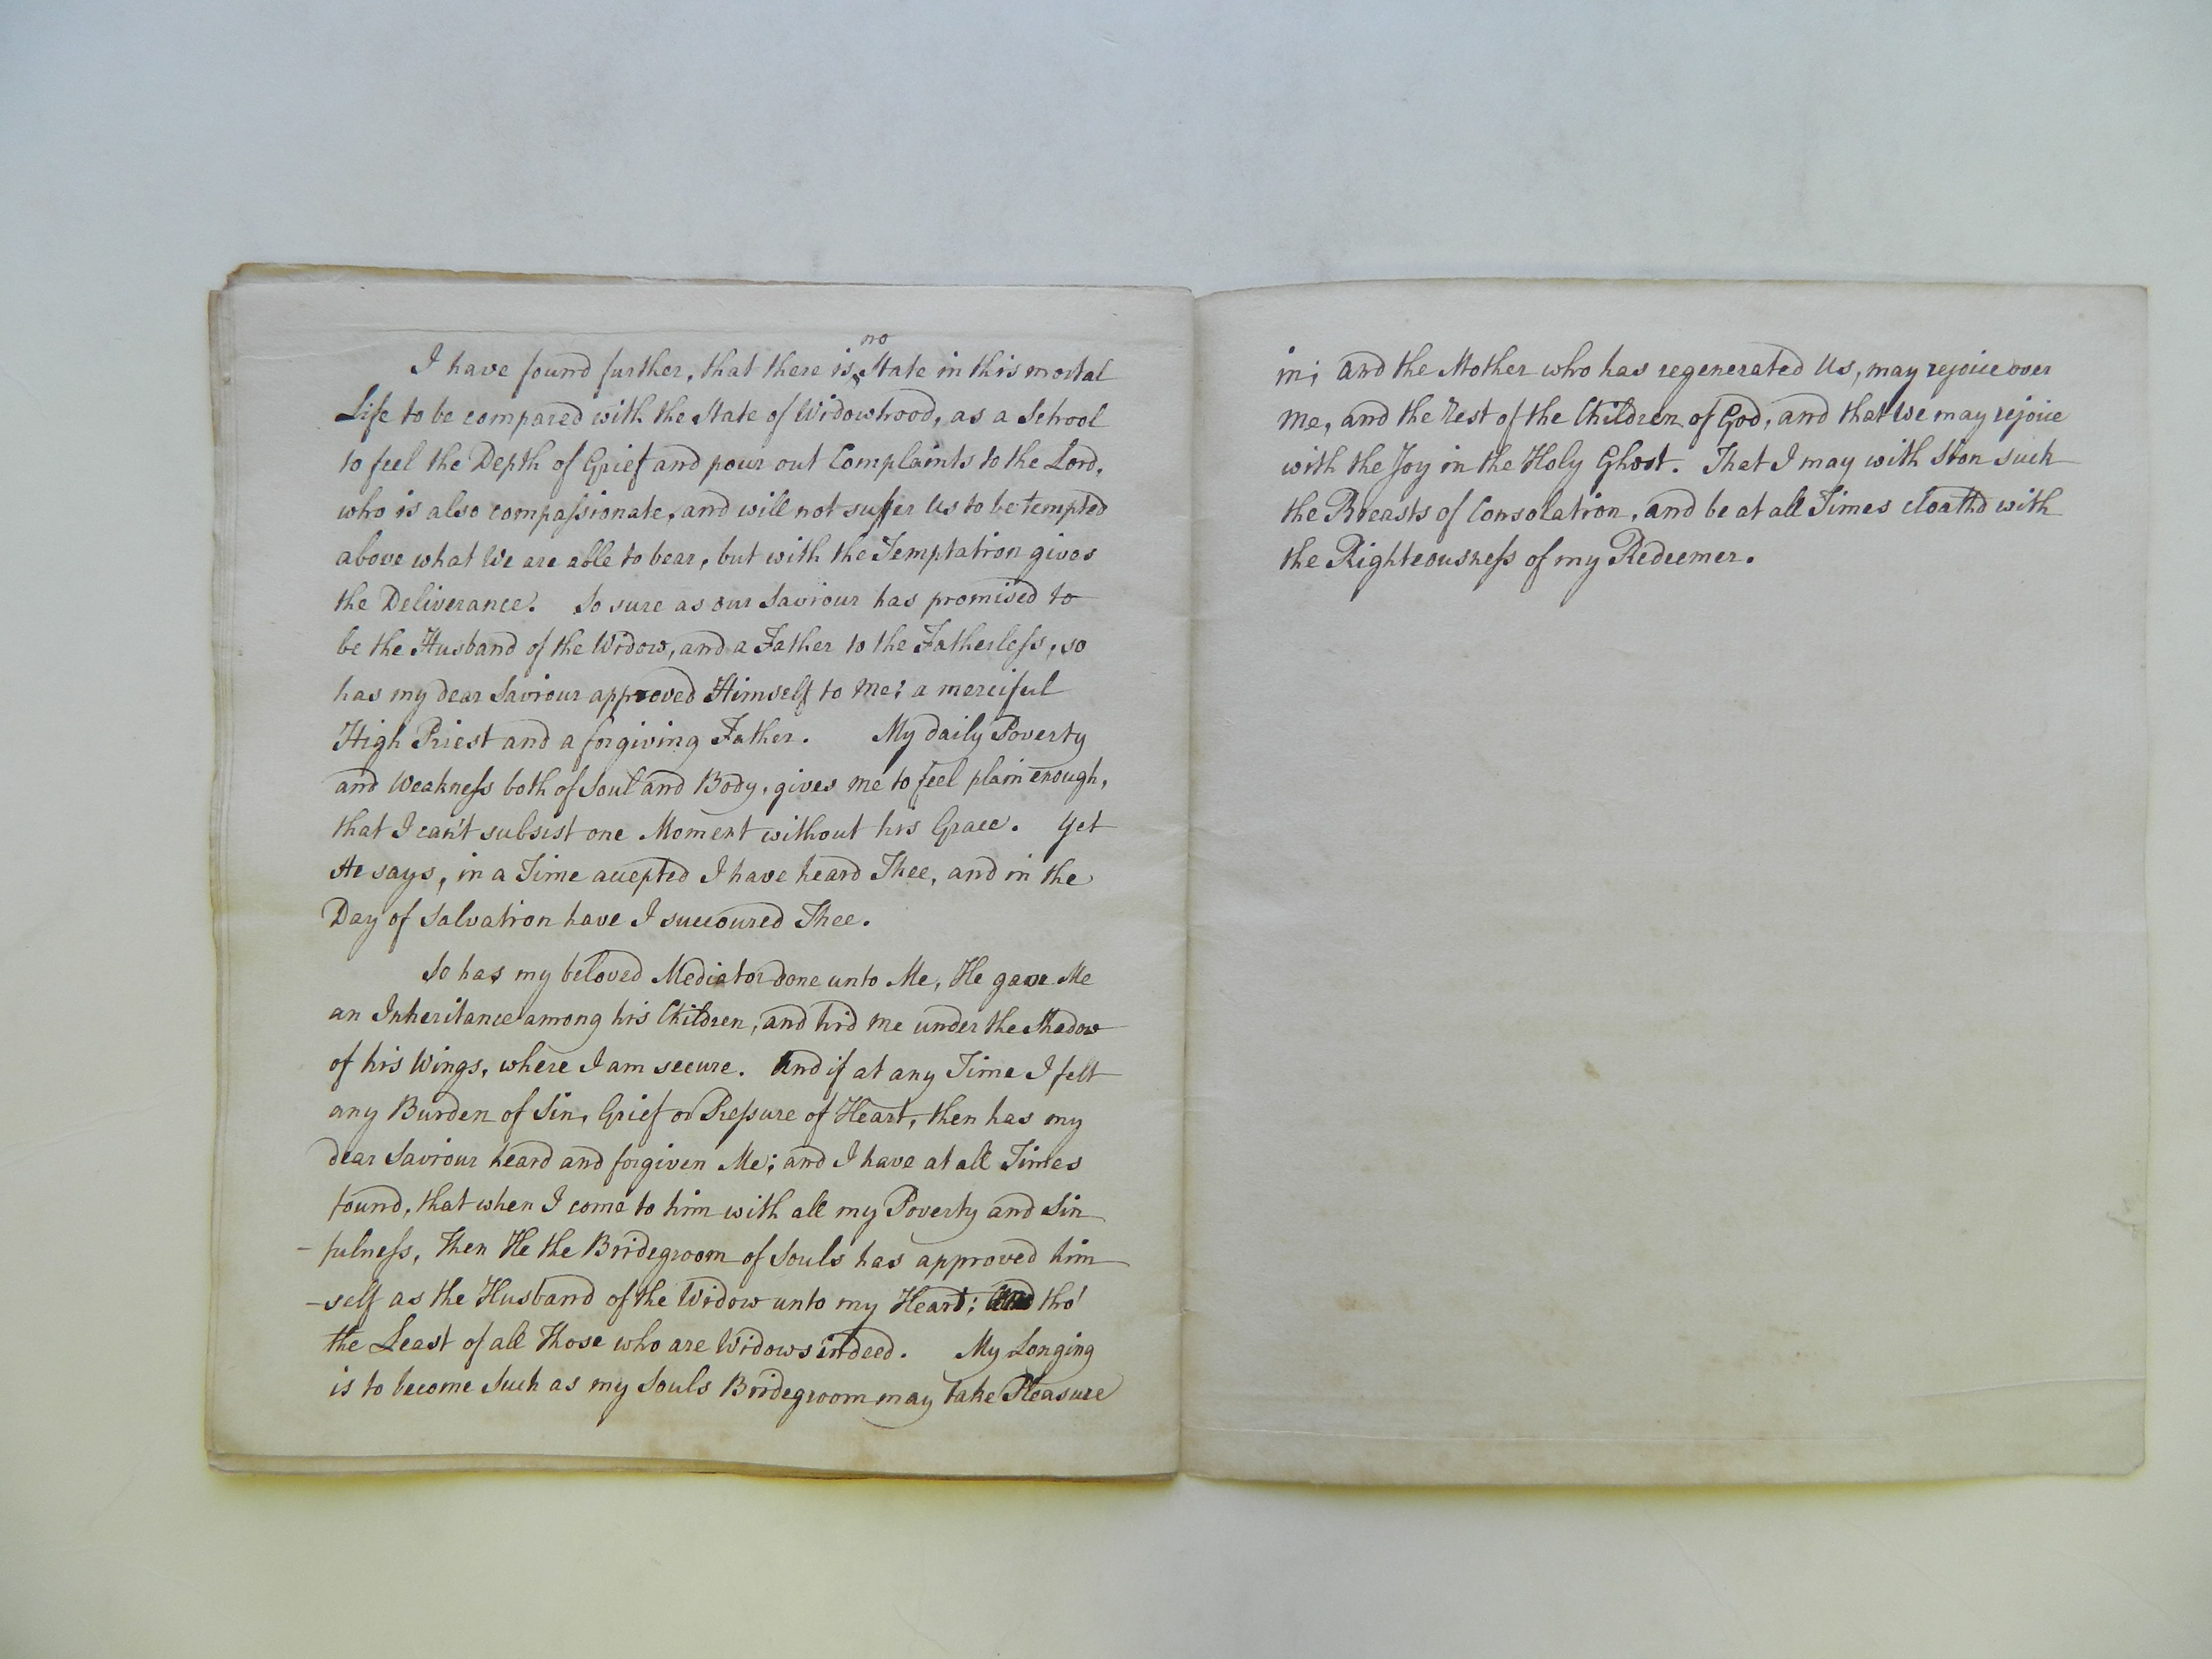 I have found further, that there is no State in this mortal
Life to be compared with the State of Widowhood, as a School
to feel the Depth of Grief and pour out Complaints to the Lord,
who is also compassionate, and will not suffer Us to be tempted
above what We are able to bear, but with the Temptation gives
the Deliverance. So sure as our Saviour has promised to
be the Husband of the Widow, and a Father to the Fatherless, so
has my dear Saviour approved Himself to me; a merciful
High Priest and a forgiving Father. My daily Poverty
and Weakness both of Soul and Body, gives me to feel plain enough,
that I can't subsist one Moment without his Grace. Yet
He says, in a Time accepted I have heard Thee, and in the
Day of Salvation have I succoured Thee.
So has my beloved Mediator done unto Me, He gave Me
an Inheritance among his Children, and hid me under the Shadow
of his Wings, where I am secure. And if at any Time I felt
any Burden of Sin, Grief or Pressure of Heart, then has my
dear Saviour heard and forgiven Me; and I have at all Times
found, that when I come to him with all my Poverty and Sin
-fulness, Then He the Bridegroom of Souls has approved him
-self as the Husband of the Widow unto my Heart; tho'
the Least of all Those who are Widows indeed. My Longing
is to become Such as my Souls Bridegroom may take Pleasure
in; and the Mother who has regenerated Us, may rejoice over
me, and the Rest of the Children of God, and that We may rejoice
with the Joy in the Holy Ghost. That I may with Sion suck
the Breasts of Consolation, and be at all Times cloath'd with
the Righteousness of my Redeemer.